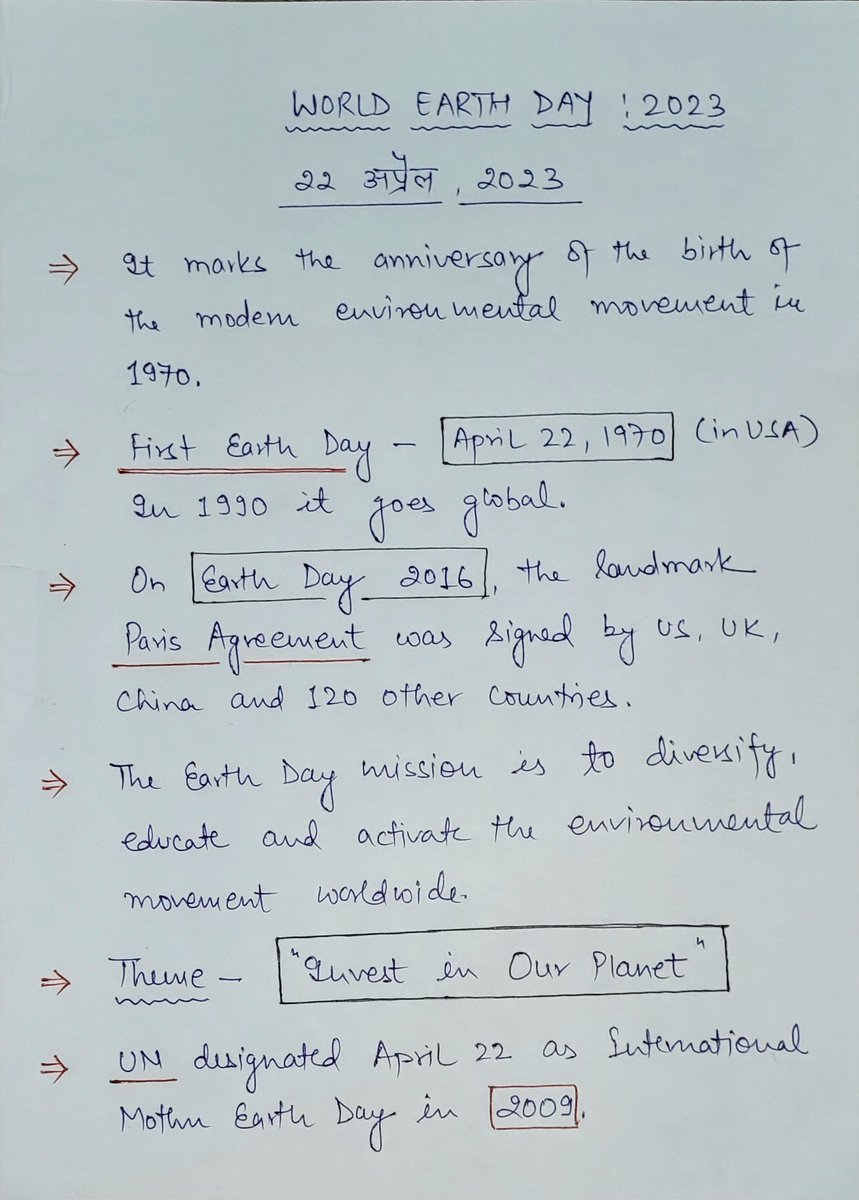 WORLD EARTH DAY : 2023
22 अप्रैल, 2023
⇒ It marks the anniversary of the birth of
the modern environmental movement in
1970.
⇒ First Earth Day – April 22, 1970 (in USA)
In 1990 it goes global.
⇒ On Earth Day 2016, the landmark
Paris Agreement was signed by US, UK,
China and 120 other countries.
⇒ The Earth Day mission is to diversify,
educate and activate the environmental
movement worldwide.
⇒ Theme – "Invest in Our Planet"
⇒ UN designated April 22 as International
Mother Earth Day in 2009.